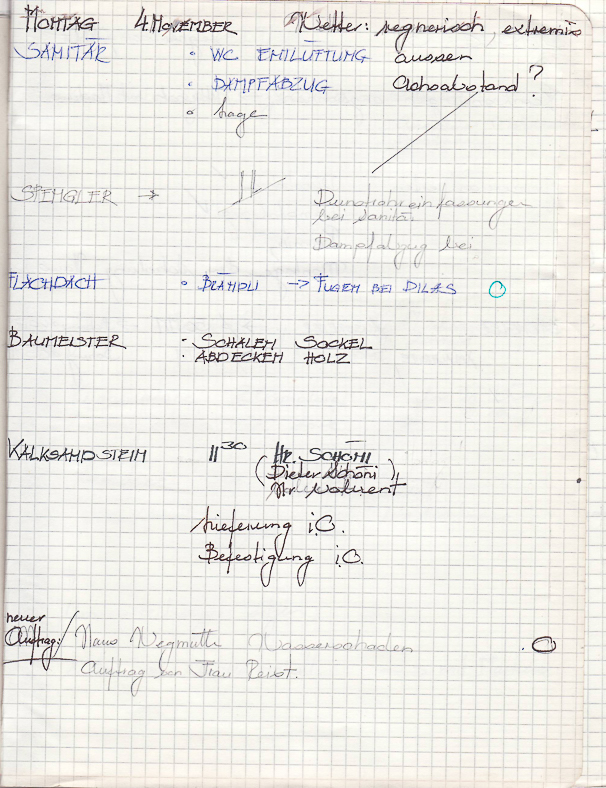 MONTAG 4. NOVEMBER Wetter: regnerisch, extremis
SANITÄR • WC ENTLÜFTUNG aussen
• DAMPFABZUG Achsabstand?
• Lage
SPENGLER → Dunstrohreinfassungen
bei Sanitär
Dampfabzug bei
FLACHDACH • BLÄMPLI → FUGEN BEI DILAS
BAUMEISTER • SCHALEN SOCKEL
• ABDECKEN HOLZ
KALKSANDSTEIN 11 30 Hr. SCHÖNI
(Dieter Schöni)
Hr.
Lieferung i.O.
Befestigung i.O.
neuer
Auftrag: Haus Wegmüller Wasserschaden
Auftrag von Frau